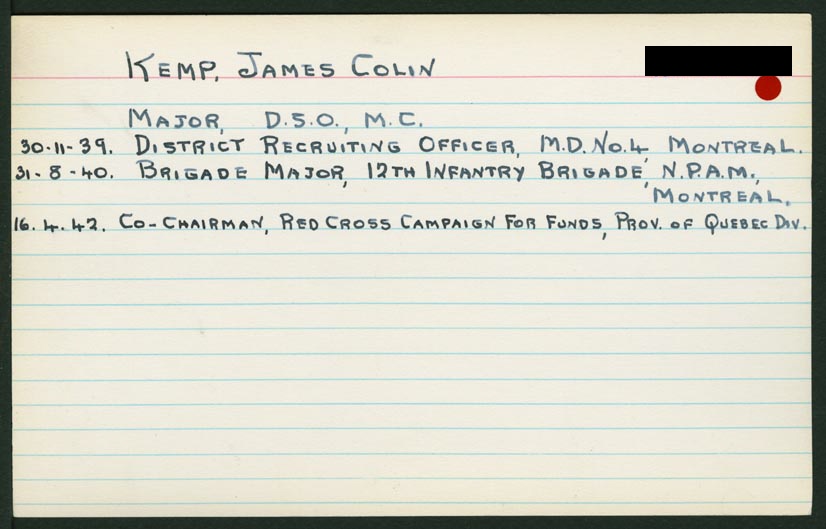 KEMP, JAMES COLIN
MAJOR, D.S.O., M.C.
30-11-39. DISTRICT RECRUITING OFFICER, M.D. No. 4, MONTREAL.
31-8-40. BRIGADE MAJOR, 12TH INFANTRY BRIGADE, N.P.A.M.,
MONTREAL.
16.4.42. CO-CHAIRMAN, RED CROSS CAMPAIGN FOR FUNDS, PROV. OF QUEBEC DIV.